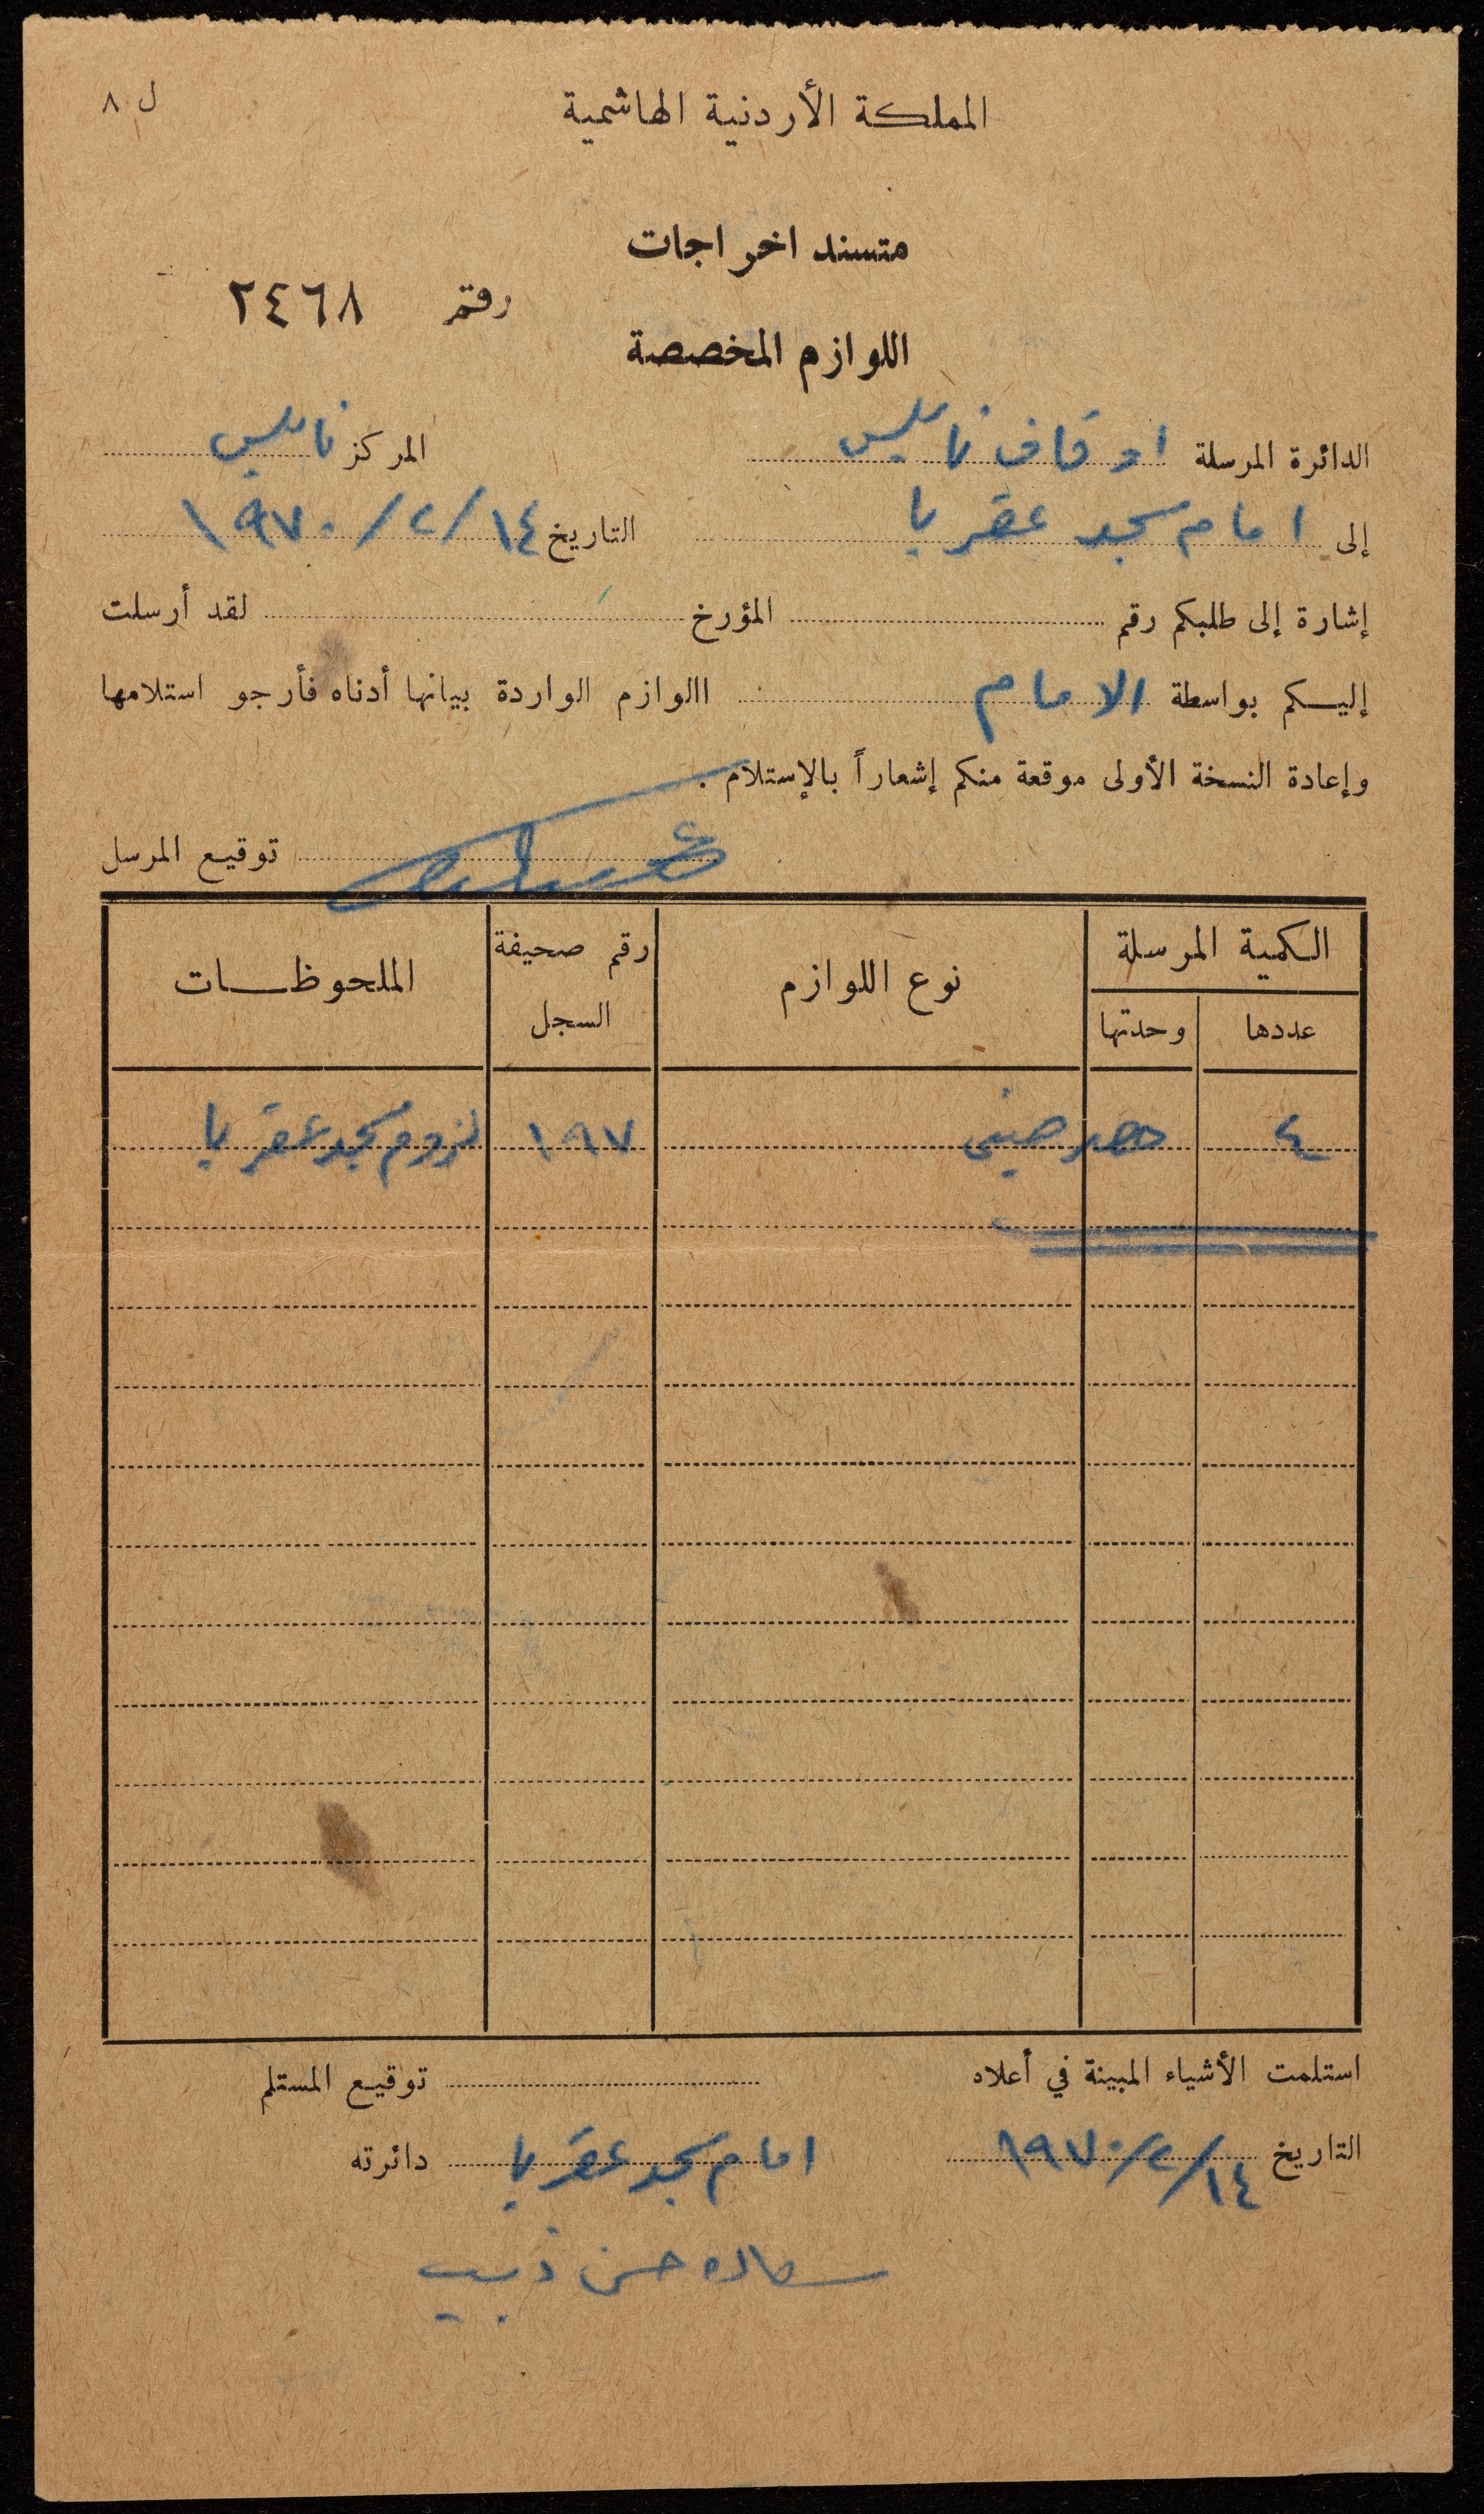 ل ٨
المملكة الأردنية الهاشمية
متسند اخراجات
رقم ٢٤٦٨
اللوازم المخصصة
الدائرة المرسلة اوقاف نابلس المركز نابلس
إلى امام مسجد عقربا التاريخ ١٤/٢/١٩٧٠
إشارة إلى طلبكم رقم المؤرخ لقد أرسلت
إليكم بواسطة الامام االوازم الواردة بيانها أدناه فأرجو استلامها
وإعادة النسخة الأولى موقعة منكم إشعاراً بالإستلام .
توقيع المرسل
الكمية المرسلة نوع اللوازم رقم صحيفة السجل الملحوظات
عددها وحدتها
٤ حصر صيني ١٩٧ لزوم مسجد عقربا
استلمت الأشياء المبينة في أعلاه توقيع المستلم
التاريخ ١٤/٢/١٩٧٠ امام مسجد عقربا دائرته
حسن ذيب